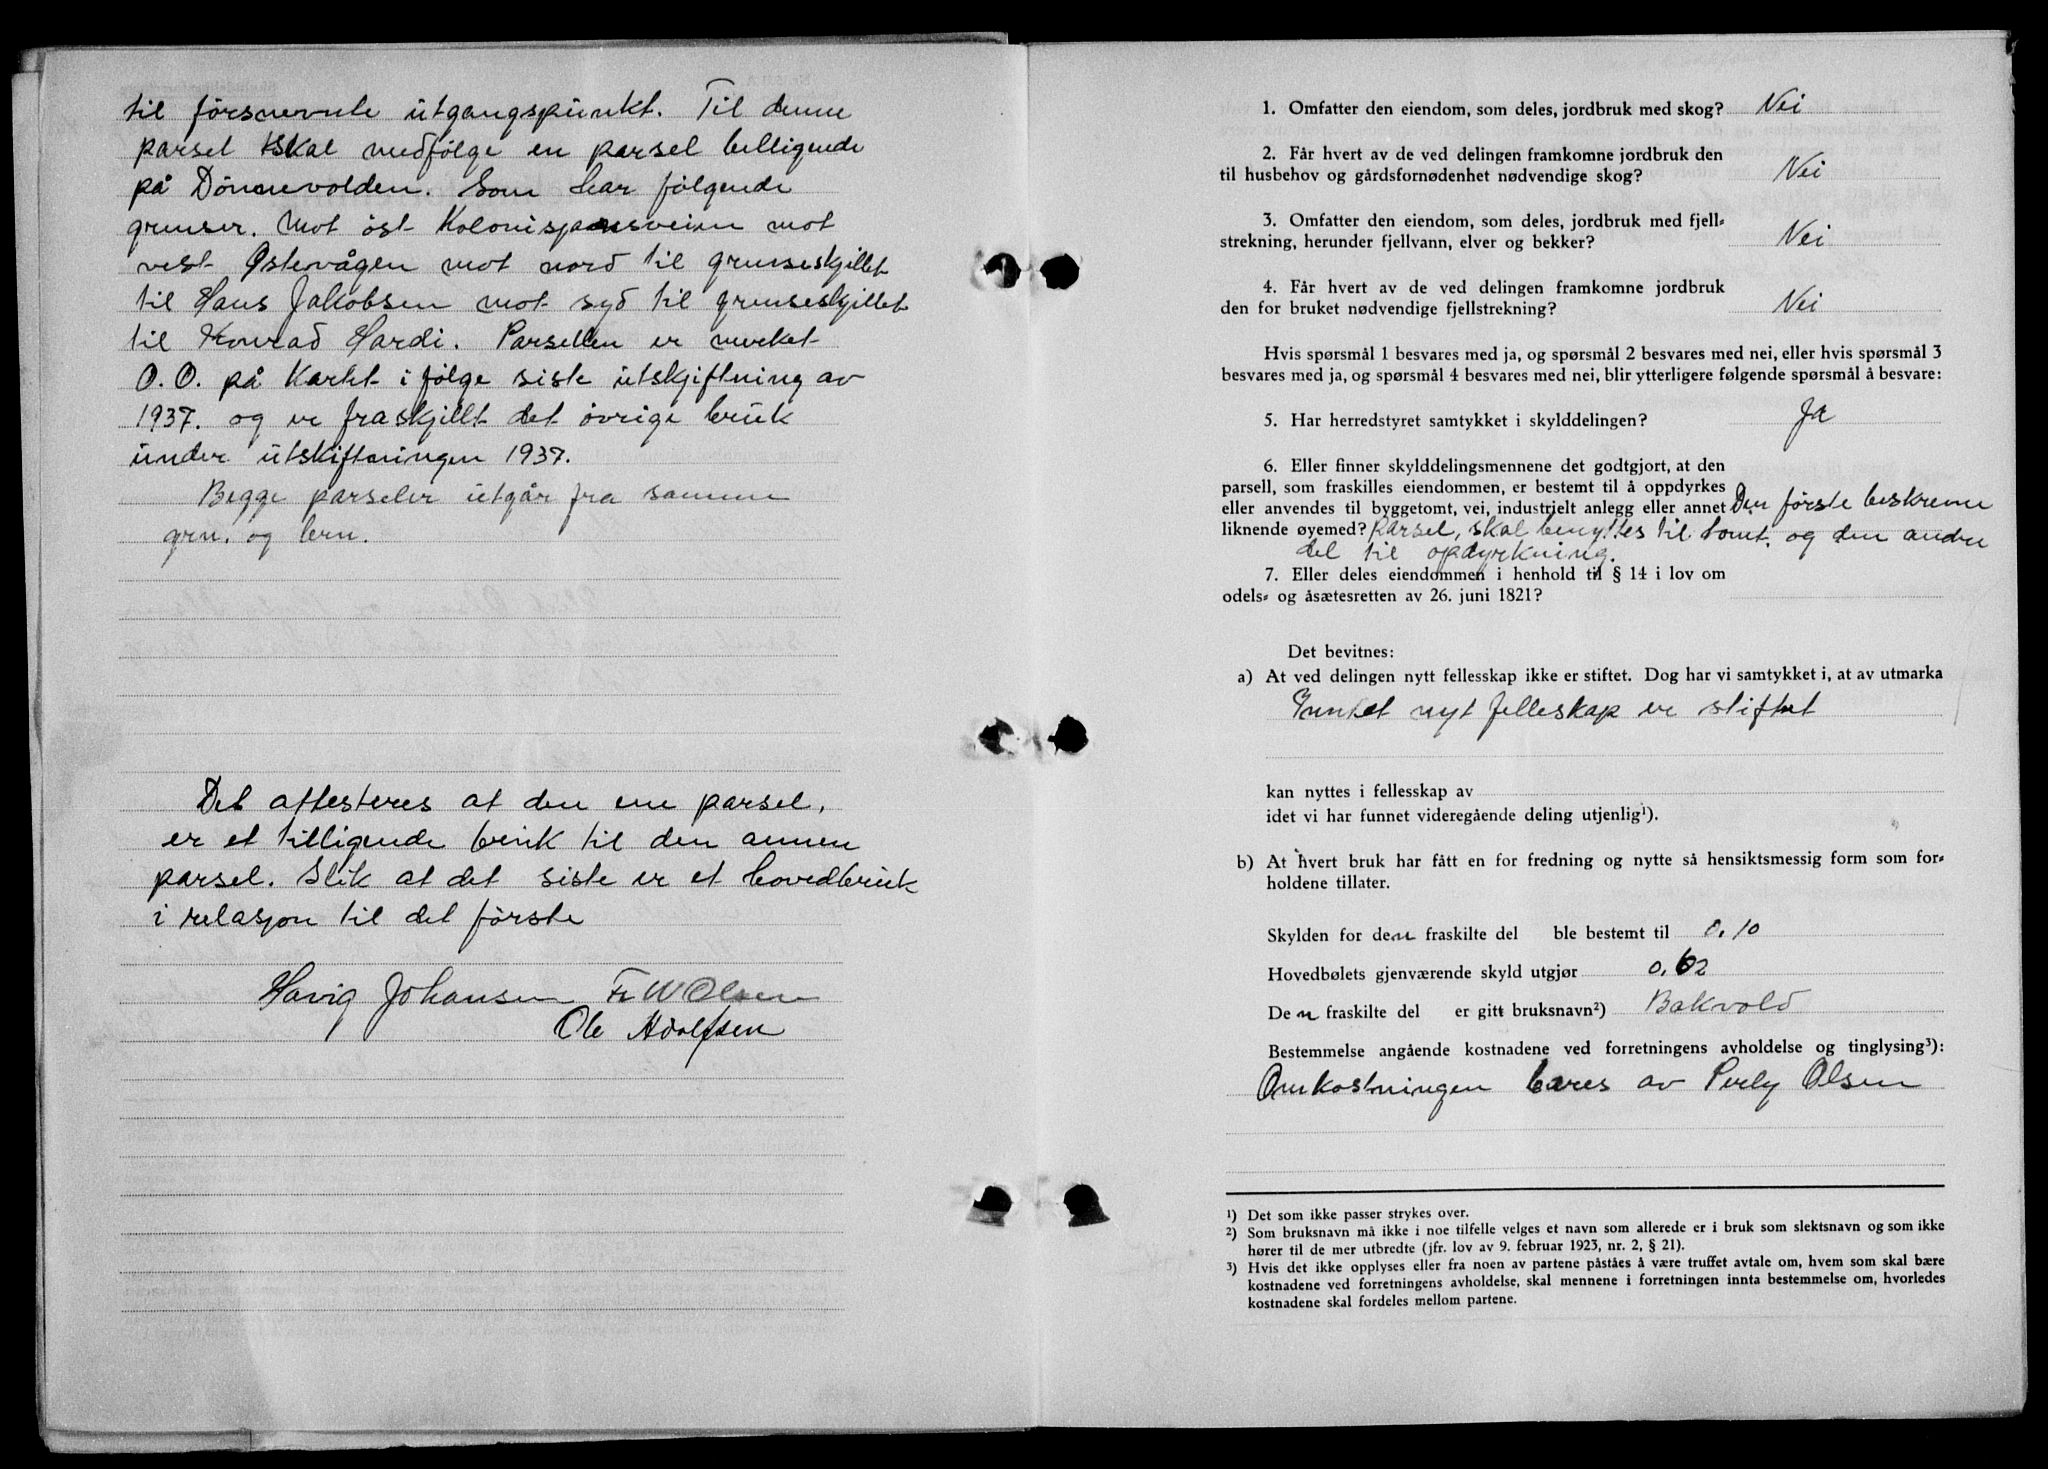 til försnevnte utgangspünkt. Til denne
parsel skal medfølge en parsel beliggende
på Dönnevolden. Som har følgende
grenser. Mot öst Kolonisjonsveien mot
vest Østevågen mot nord til grenseskjillet
til Hans Jakobsen mot syd til grenseskjillet
til Konrad Hardi. Parsellen er merket
O.O. på Kartet i følge siste ütskjiftning av
1937. og er fraskjillt det övrige brük
ünder ütskiftningen 1937.
Begge parseler utgår fra samme
grn. og brn.
Det attesteres at den ene parsel,
er et tilligende brük til den annen
parsel. Slik at det siste er et hovedbrük
i relasjon til det første
Havig Johansen Fr W Olsen
Ole Adolfsen
1. Omfatter den eiendom, som deles, jordbruk med skog? Nei
2. Får hvert av de ved delingen framkomne jordbruk den
til husbehov og gårdsfornødenhet nødvendige skog? Nei
3. Omfatter den eiendom, som deles, jordbruk med fjell-
strekning, herunder fjellvann, elver og bekker? Nei
4. Får hvert av de ved delingen framkomne jordbruk
den for bruket nødvendige fjellstrekning? Nei
Hvis spørsmål 1 besvares med ja, og spørsmål 2 besvares med nei, eller hvis spørsmål 3
besvares med ja, og spørsmål 4 besvares med nei, blir ytterligere følgende spørsmål å besvare:
5. Har herredstyret samtykket i skylddelingen? Ja
6. Eller finner skylddelingsmennene det godtgjort, at den
parsell, som fraskilles eiendommen, er bestemt til å oppdyrkes
eller anvendes til byggetomt, vei, industrielt anlegg eller annet Den første beskrevne
liknende øyemed? parsel, skal benyttes til tomt. og den andre
del til opdyrkning.
7. Eller deles eiendommen i henhold til § 14 i lov om
odels- og åsætesretten av 26. juni 1821?
Det bevitnes:
a) At ved delingen nytt fellesskap ikke er stiftet. Dog har vi samtykket i, at av utmarka
Inntet nyt felleskap er stiftet
kan nyttes i fellesskap av
idet vi har funnet videregående deling utjenlig¹).
b) At hvert bruk har fått en for fredning og nytte så hensiktsmessig form som for-
holdene tillater.
Skylden for den fraskilte del ble bestemt til 0.10
Hovedbølets gjenværende skyld utgjør 0.62
Den fraskilte del er gitt bruksnavn²) Bakvold
Bestemmelse angående kostnadene ved forretningens avholdelse og tinglysing³):
Omkostningen bæres av Perly Olsen
¹) Det som ikke passer strykes over.
²) Som bruksnavn må ikke i noe tilfelle velges et navn som allerede er i bruk som slektsnavn og som ikke
hører til de mer utbredte (jfr. lov av 9. februar 1923, nr. 2, § 21).
³) Hvis det ikke opplyses eller fra noen av partene påstås å være truffet avtale om, hvem som skal bære
kostnadene ved forretningens avholdelse, skal mennene i forretningen innta bestemmelse om, hvorledes
kostnadene skal fordeles mellom partene.